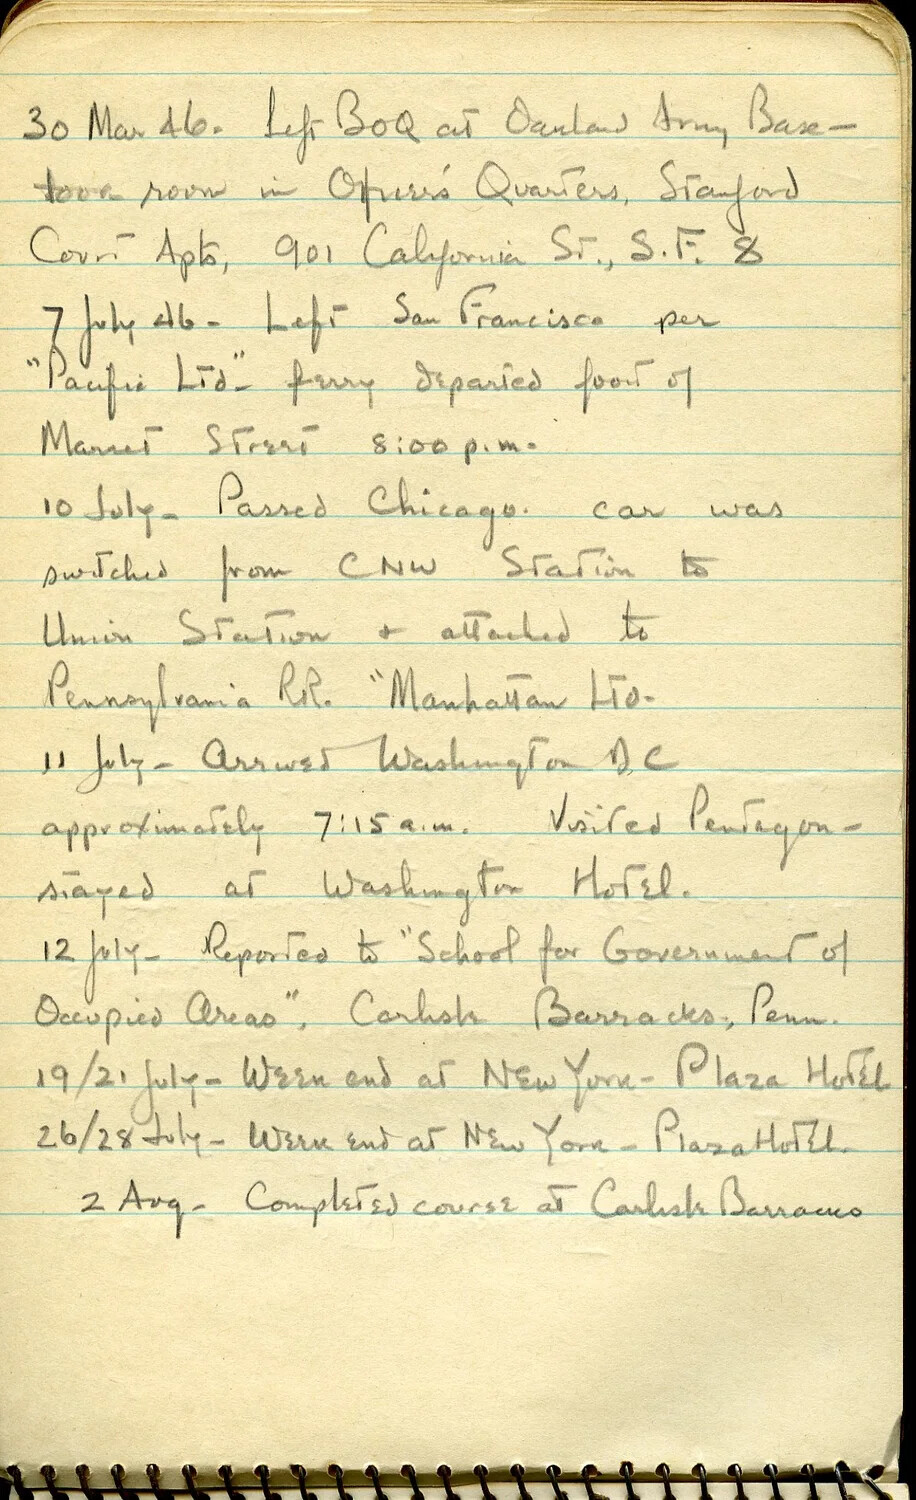 30 Mar 46. Left BOQ at Oakland Army Base —
took room in Officers' Quarters, Stanford
Court Apts, 901 California St., S.F. 8
7 July 46 - Left San Francisco per
"Pacific Ltd" - ferry departed foot of
Market Street 8:00 p.m.
10 July - Passed Chicago. car was
switched from CNW Station to
Union Station + attached to
Pennsylvania RR. "Manhattan Ltd.
11 July - Arrived Washington D.C
approximately 7:15 a.m. Visited Pentagon -
stayed at Washington Hotel.
12 July - Reported to "School for Government of
Occupied Areas", Carlisle Barracks, Penn.
19/21 July - Week end at New York - Plaza Hotel
26/28 July - Week end at New York - Plaza Hotel.
2 Aug - Completed course at Carlisle Barracks